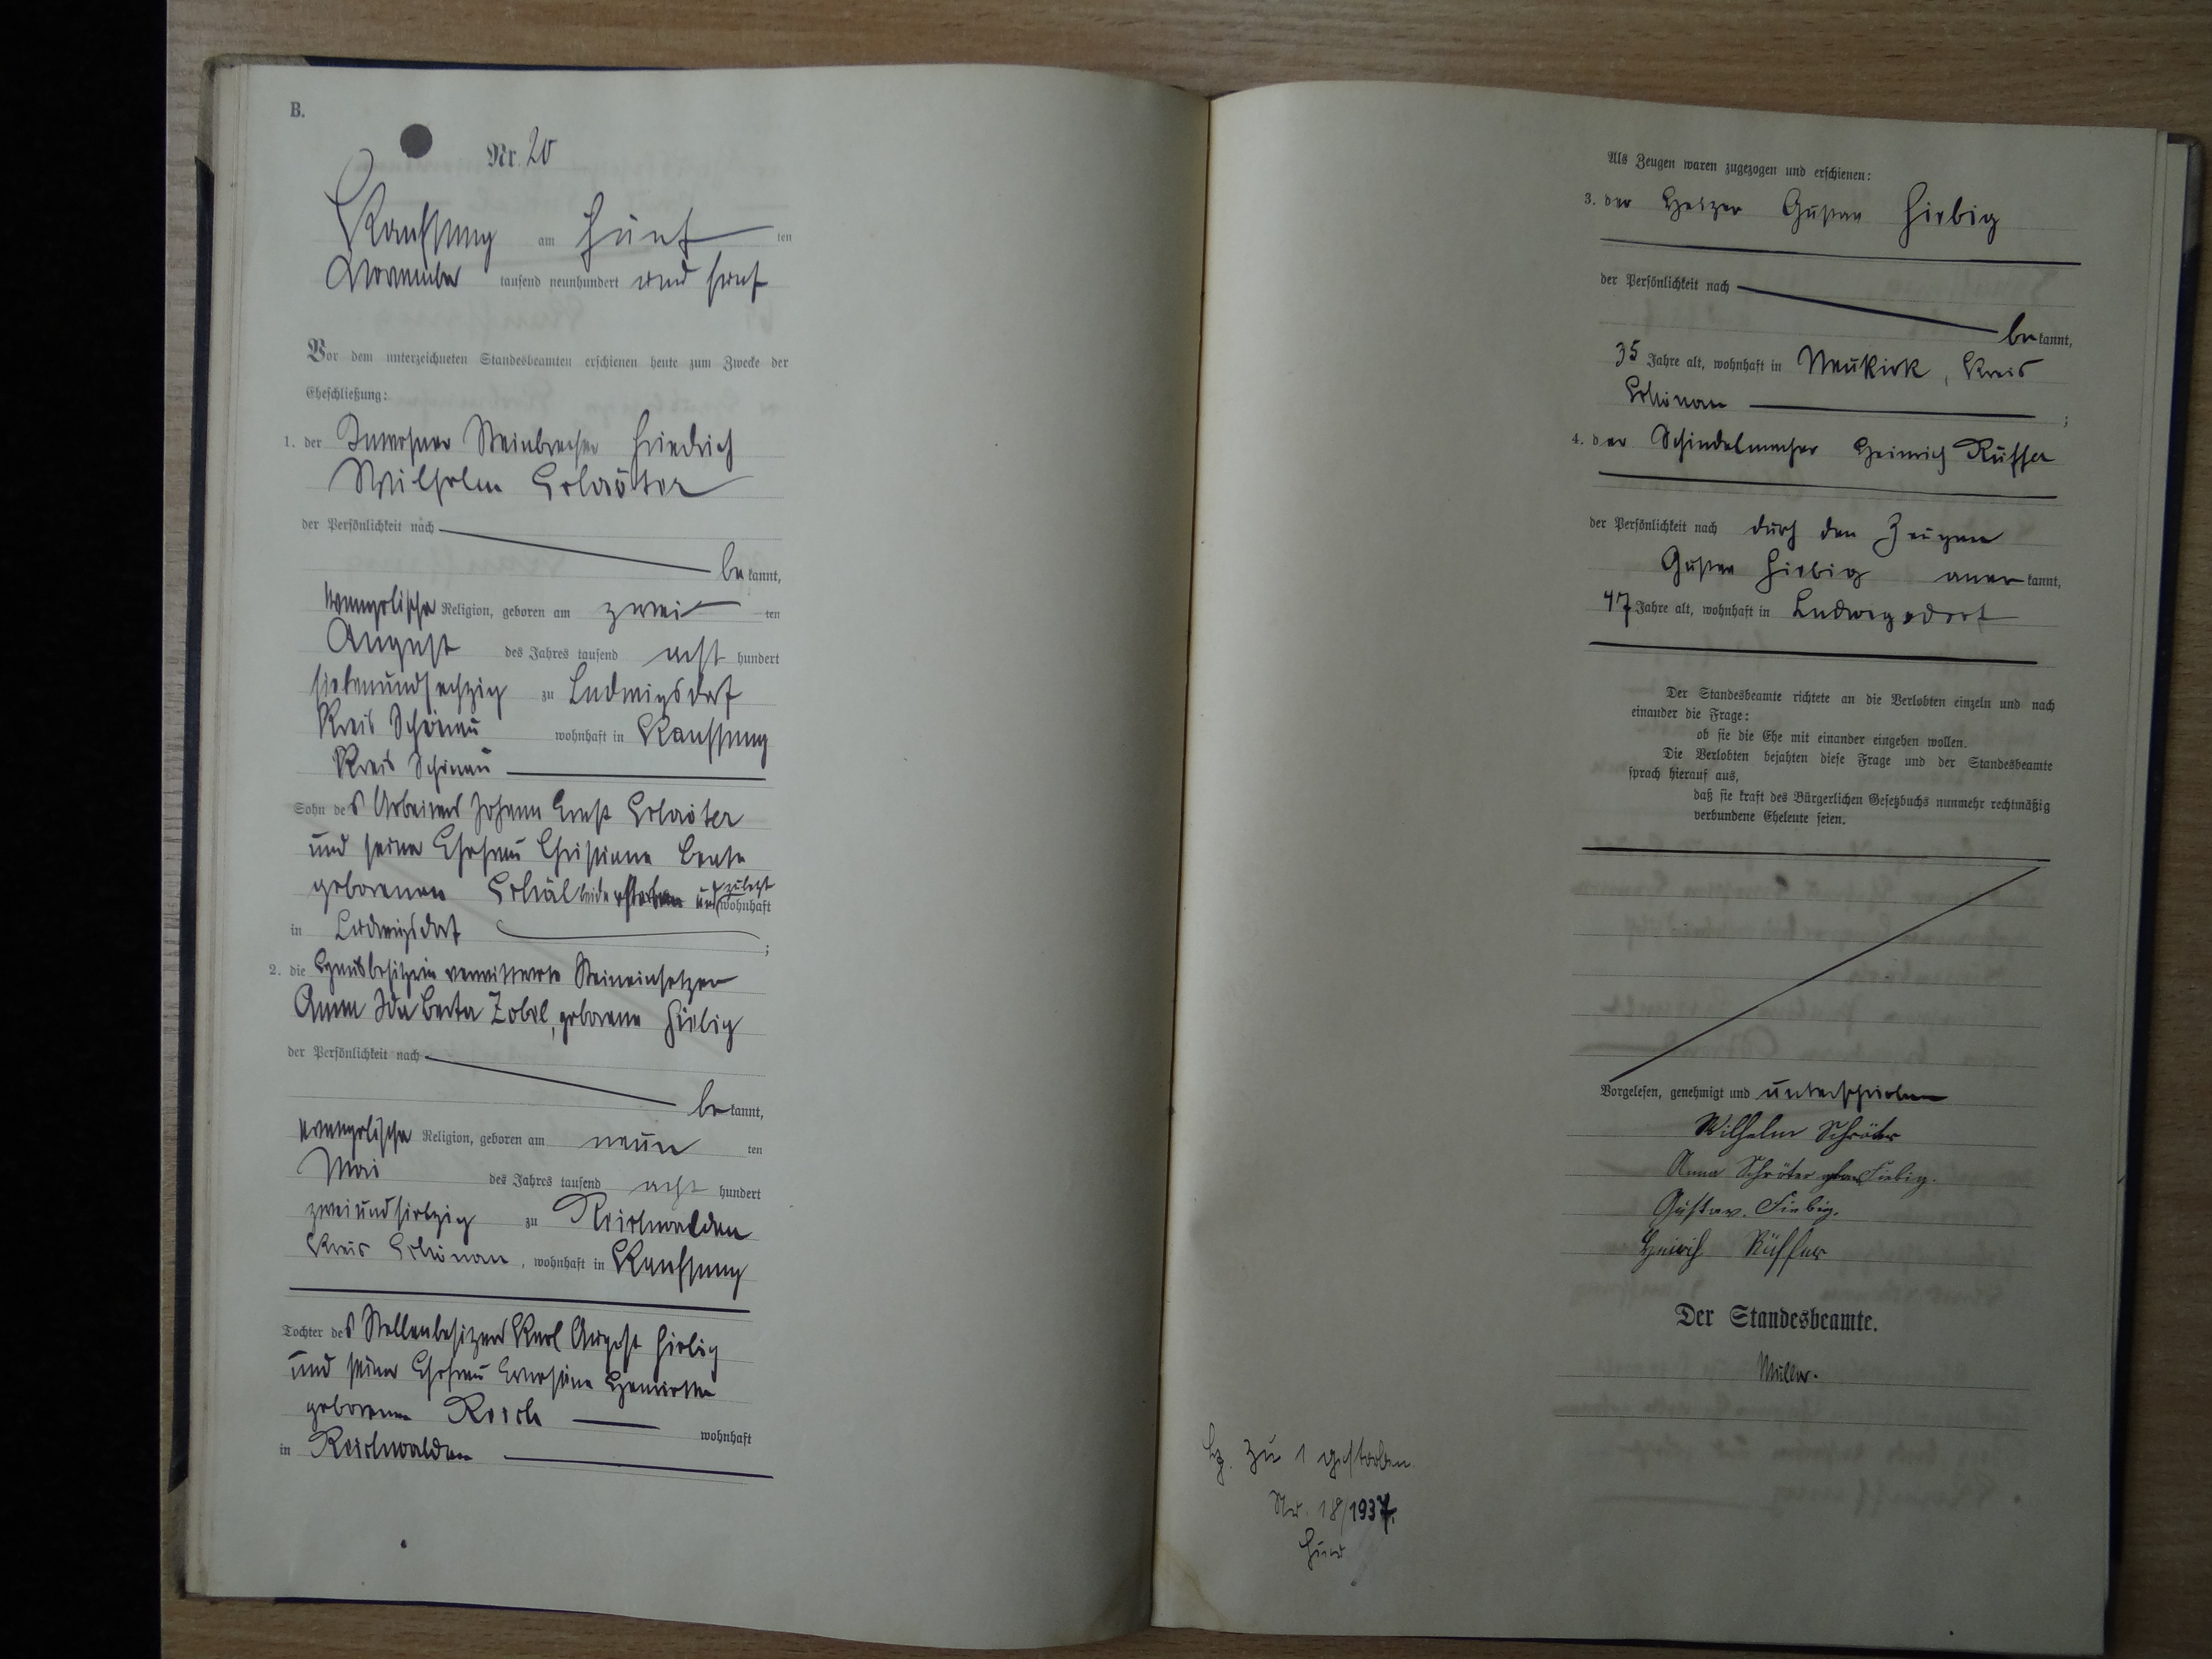 B.
Nr. 20
Kauffung am fünften
November tausend neunhundert und fünf
Vor dem unterzeichneten Standesbeamten erschienen heute zum Zwecke der
Eheschließung:
1. der Inwohner Steinbrecher Friedrich
Wilhelm Schröter
der Persönlichkeit nach
bekannt,
evangelische Religion, geboren am zweiten
August des Jahres tausend acht hundert
siebenundsechzig zu Ludwigsdorf
Kreis Schönau wohnhaft in Kauffung
Kreis Schönau
Sohn des Arbeiters Johann Ernst Schröter
und seiner Ehefrau Christiane Beate
geborenen beide verstorben und zuletzt wohnhaft
in Ludwigsdorf ;
2. die Hausbesitzerin verwittwete Steineinsetzer
Anna Ida Berta Zobel, geborene Fiebig
der Persönlichkeit nach
bekannt,
evangelische Religion, geboren am neunten
Mai des Jahres tausend acht hundert
zweiundsiebzig zu Reichwaldau
Kreis Schönau, wohnhaft in Kauffung
Tochter des Stellenbesitzers Karl August Fiebig
und seiner Ehefrau Ernestine Henriette
geborenen wohnhaft
in Reichwaldau
Als Zeugen waren zugezogen und erschienen:
3. der Heizer Gustav Fiebig
der Persönlichkeit nach
bekannt,
35 Jahre alt, wohnhaft in Neukirch, Kreis
Schönau ;
4. der Schindelmacher Heinrich Rüffer
der Persönlichkeit nach durch den Zeugen
Gustav Fiebig anerkannt,
47 Jahre alt, wohnhaft in Ludwigsdorf
Der Standesbeamte richtete an die Verlobten einzeln und nach
einander die Frage:
ob sie die Ehe mit einander eingehen wollen.
Die Verlobten bejahten diese Frage und der Standesbeamte
sprach hierauf aus,
daß sie kraft des Bürgerlichen Gesetzbuchs nunmehr rechtmäßig
verbundene Eheleute seien.
Vorgelesen, genehmigt und unterschrieben
Wilhelm Schröter
Anna Schröter geb. Fiebig.
Gustav. Fiebig.
Heinrich Rüffer
Der Standesbeamte.
Müller.
zu 1 gestorben.
Nr. 18/1937.